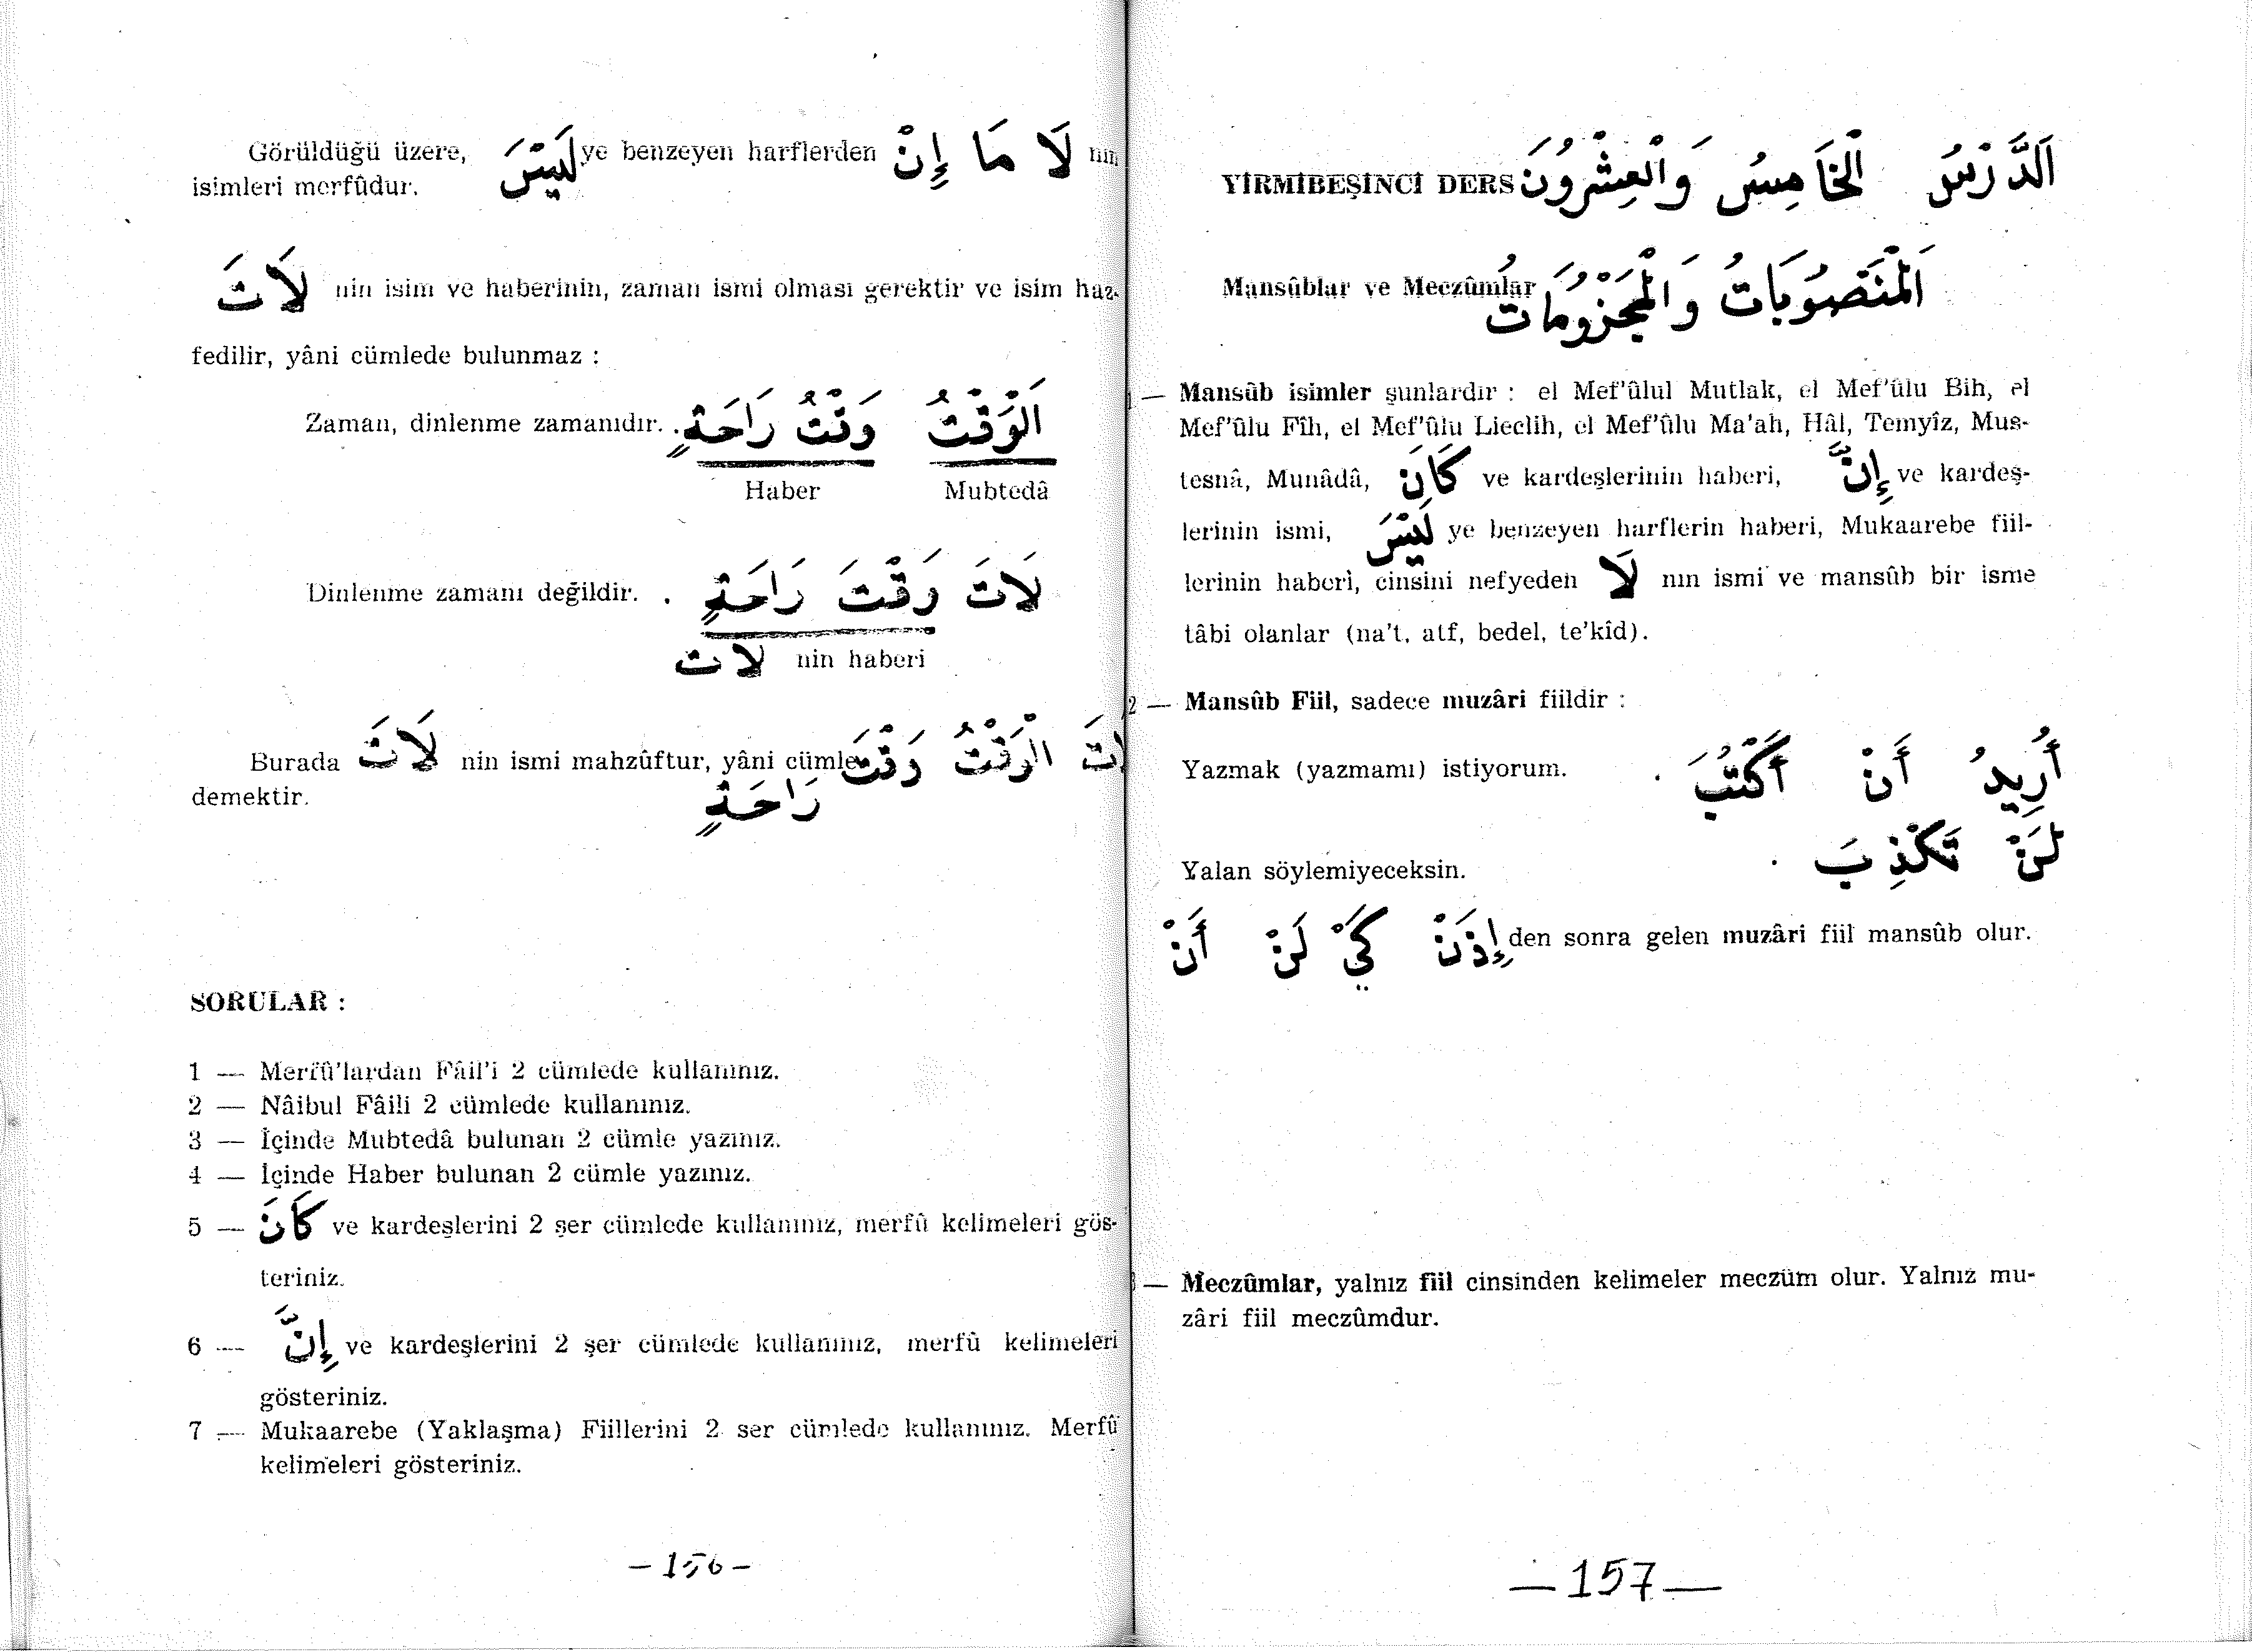 Görüldüğü üzere, لَيْسَ ye benzeyen harflerden إِنْ مَا لَا nin
isimleri merfûdur.
لَاتَ nin isim ve haberinin, zaman ismi olması gerektir ve isim haz-
fedilir, yâni cümlede bulunmaz :
Zaman, dinlenme zamanıdır. اَلْوَقْتُ وَقْتُ رَاحَةٍ.
Haber Mubtedâ
Dinlenme zamanı değildir. لَاتَ وَقْتَ رَاحَةٍ .
لات nin haberi
Burada لَاتَ nin ismi mahzûftur, yâni cümle لَاتَ الْوَقْتُ وَقْتَ
demektir. رَاحَةٍ
SORULAR :
1 — Merfû'lardan Fâil'i 2 cümlede kullanınız.
2 — Nâibul Fâili 2 cümlede kullanınız.
3 — İçinde Mubtedâ bulunan 2 cümle yazınız.
4 — İçinde Haber bulunan 2 cümle yazınız.
5 — كَانَ ve kardeşlerini 2 şer cümlede kullanınız, merfû kelimeleri gös-
teriniz.
6 — إِنَّ ve kardeşlerini 2 şer cümlede kullanınız, merfû kelimeleri
gösteriniz.
7 — Mukaarebe (Yaklaşma) Fiillerini 2 ser cümlede kullanınız. Merfû
kelimeleri gösteriniz.
— 156 —
YİRMİBEŞİNCİ DERS اَلدَّرْسُ الْخَامِسُ وَالْعِشْرُونَ
Mansûblar ve Meczûmlar اَلْمَنْصُوبَاتُ وَالْمَجْزُومَاتُ
1 — Mansûb isimler şunlardır : el Mef'ûlul Mutlak, el Mef'ûlu Bih, el
Mef'ûlu Fîh, el Mef'ûlu Lieclih, el Mef'ûlu Ma'ah, Hâl, Temyîz, Mus-
tesnâ, Munâdâ, كَانَ ve kardeşlerinin haberi, إِنَّ ve kardeş-
lerinin ismi, لَيْسَ ye benzeyen harflerin haberi, Mukaarebe fiil-
lerinin haberi, cinsini nefyeden لَا nın ismi ve mansûb bir isme
tâbi olanlar (na't, atf, bedel, te'kîd).
2 — Mansûb Fiil, sadece muzâri fiildir :
Yazmak (yazmamı) istiyorum. أُرِيدُ أَنْ أَكْتُبَ .
Yalan söylemiyeceksin. لَنْ تَكْذِبَ .
أَنْ لَنْ كَيْ إِذَنْ den sonra gelen muzâri fiil mansûb olur.
3 — Meczûmlar, yalnız fiil cinsinden kelimeler meczûm olur. Yalnız mu-
zâri fiil meczûmdur.
— 157 —